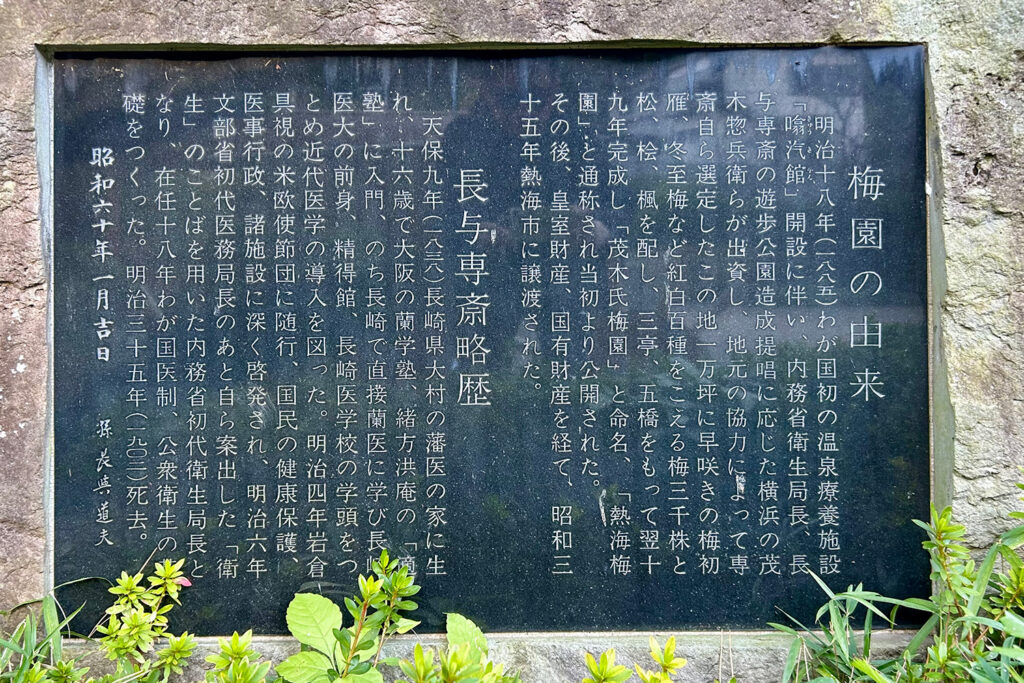 梅園の由来
明治十八年(一八八五)わが国初の温泉療養施設
「噏汽館」開設に伴い、内務省衛生局長、長
与専斎の遊歩公園造成提唱に応じた横浜の茂
木惣兵衛らが出資し、地元の協力によって専
斎自ら選定したこの地一万坪に早咲きの梅初
雁、冬至梅など紅白百種をこえる梅三千株と
松、桧、楓を配し、三亭、五橋をもって翌十
九年完成し「茂木氏梅園」と命名、「熱海梅
園」と通称され当初より公開された。
その後、皇室財産、国有財産を経て、昭和三
十五年熱海市に譲渡された。
長与専斎略歴
天保九年(一八三八)長崎県大村の藩医の家に生
れ、十六歳で大阪の蘭学塾、緒方洪庵の「適
塾」に入門、のち長崎で直接蘭医に学び長崎
医大の前身、精得館、長崎医学校の学頭をつ
とめ近代医学の導入を図った。明治四年岩倉
具視の米欧使節団に随行、国民の健康保護、
医事行政、諸施設に深く啓発され、明治六年
文部省初代医務局長のあと自ら案出した「衛
生」のことばを用いた内務省初代衛生局長と
なり、在任十八年わが国医制、公衆衛生の
礎をつくった。明治三十五年(一九〇二)死去。
昭和六十年一月吉日
孫 長與道夫